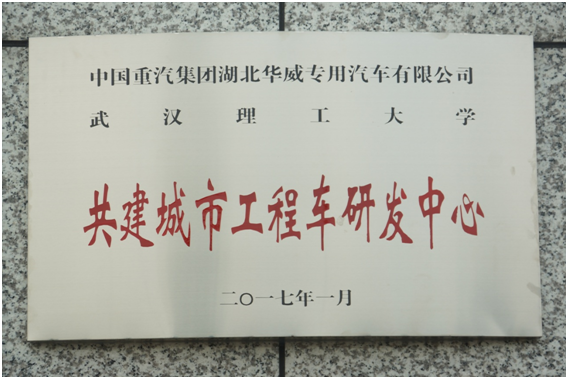 中国重汽集团湖北华威专用汽车有限公司
武汉理工大学
共建城市工程车研发中心
二〇一七年一月